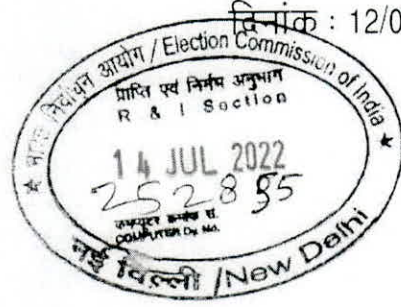 दिनांक : 12/0
भारत निर्वाचन आयोग / Election Commission of India
प्राप्ति एवं निर्गम अनुभाग
R & I Section
14 JUL 2022
252895
कम्प्यूटर क्रमांक सं.
COMPUTER Dy. No.
नई दिल्ली / New Delhi